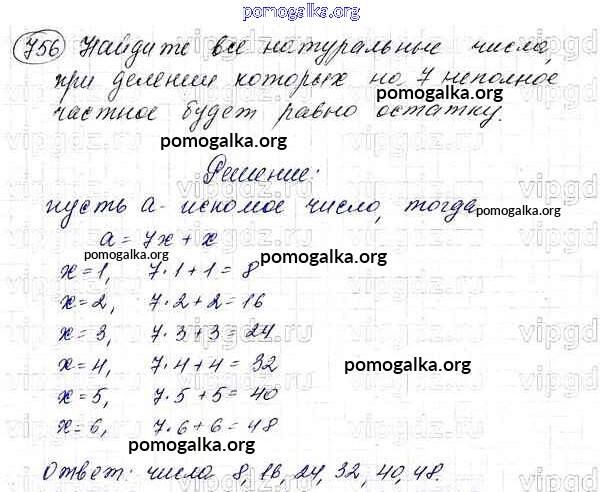 pomogalka.org
756 Найдите все натуральные числа,
при делении которых на 7 неполное
pomogalka.org
частное будет равно остатку.
pomogalka.org
Решение:
пусть а - искомое число, тогда
pomogalka.org
а = 7х + х
pomogalka.org
х = 1, 7·1 + 1 = 8
pomogalka.org
х = 2, 7·2 + 2 = 16
х = 3, 7·3 + 3 = 24
х = 4, 7·4 + 4 = 32
pomogalka.org
х = 5, 7·5 + 5 = 40
х = 6, 7·6 + 6 = 48
pomogalka.org
Ответ: числа 8, 16, 24, 32, 40, 48.